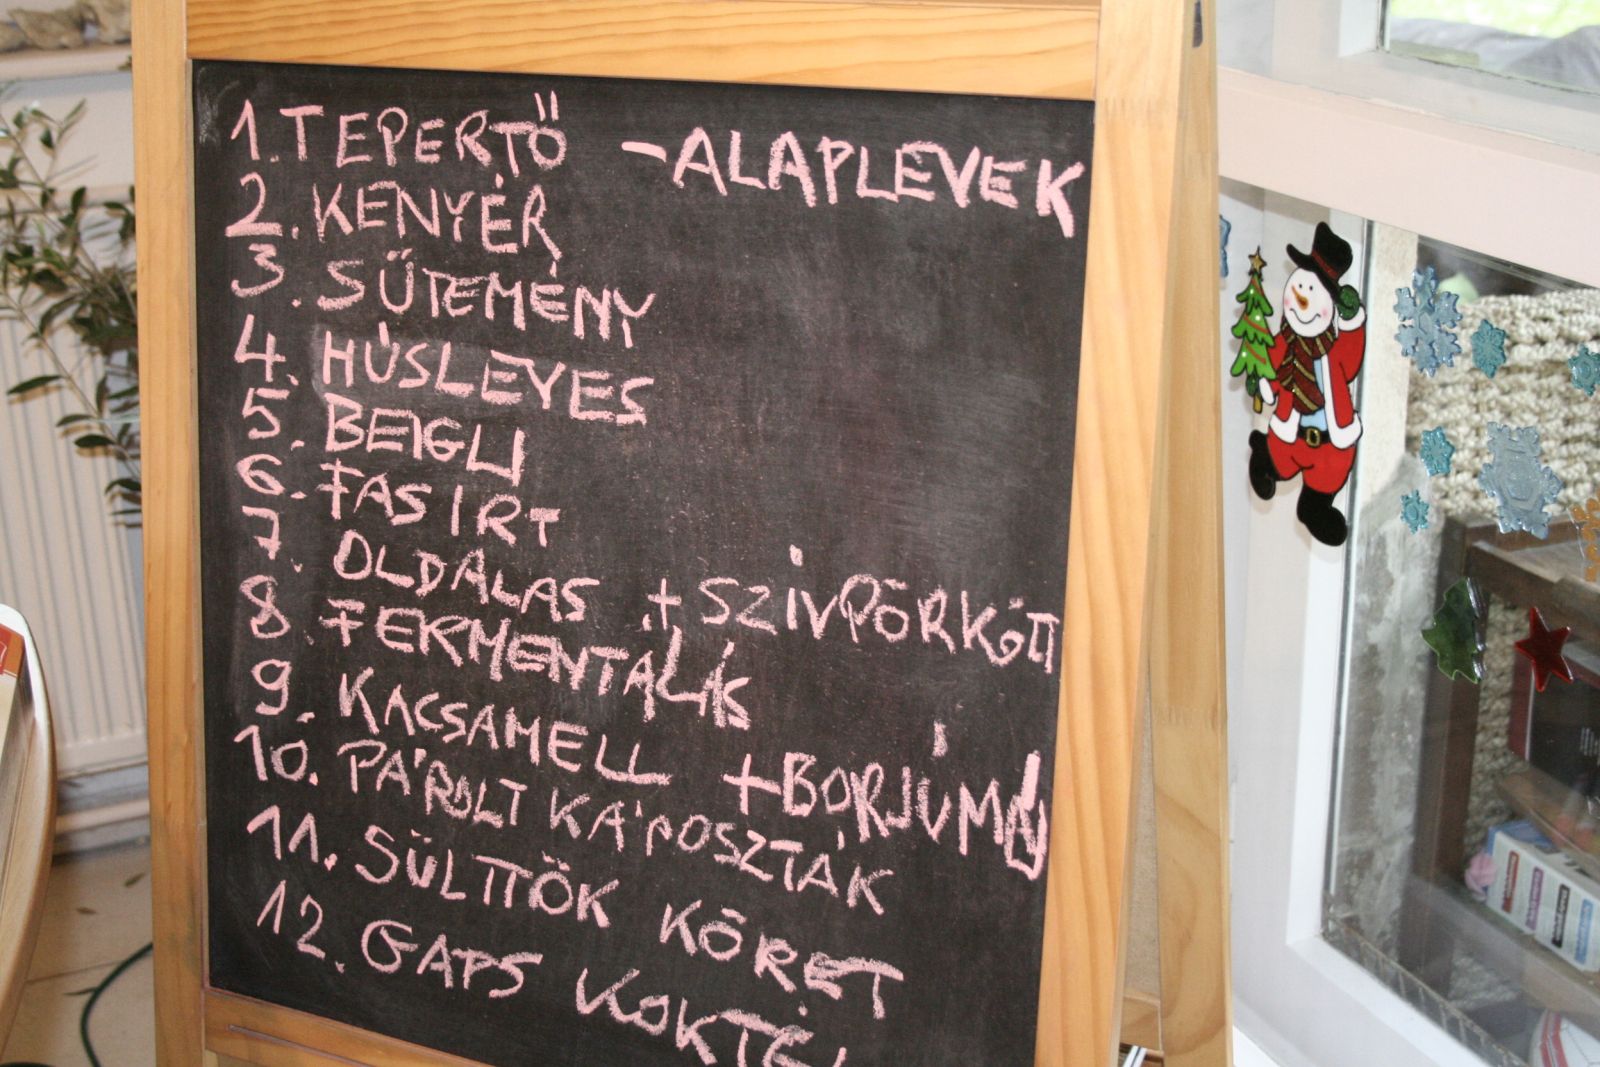 1. TEPERTŐ -ALAPLEVEK
2. KENYÉR
3. SŰTEMÉNY
4. HÚSLEVES
5. BEIGLI
6. FASIRT
7. OLDALAS + SZÍVPÖRKÖTT
8. FERMENTÁLÁS
9. KACSAMELL + BORJÚMÁJ
10. PÁROLT KÁPOSZTÁK
11. SÜLTTÖK KÖRET
12. GAPS KOKTÉL